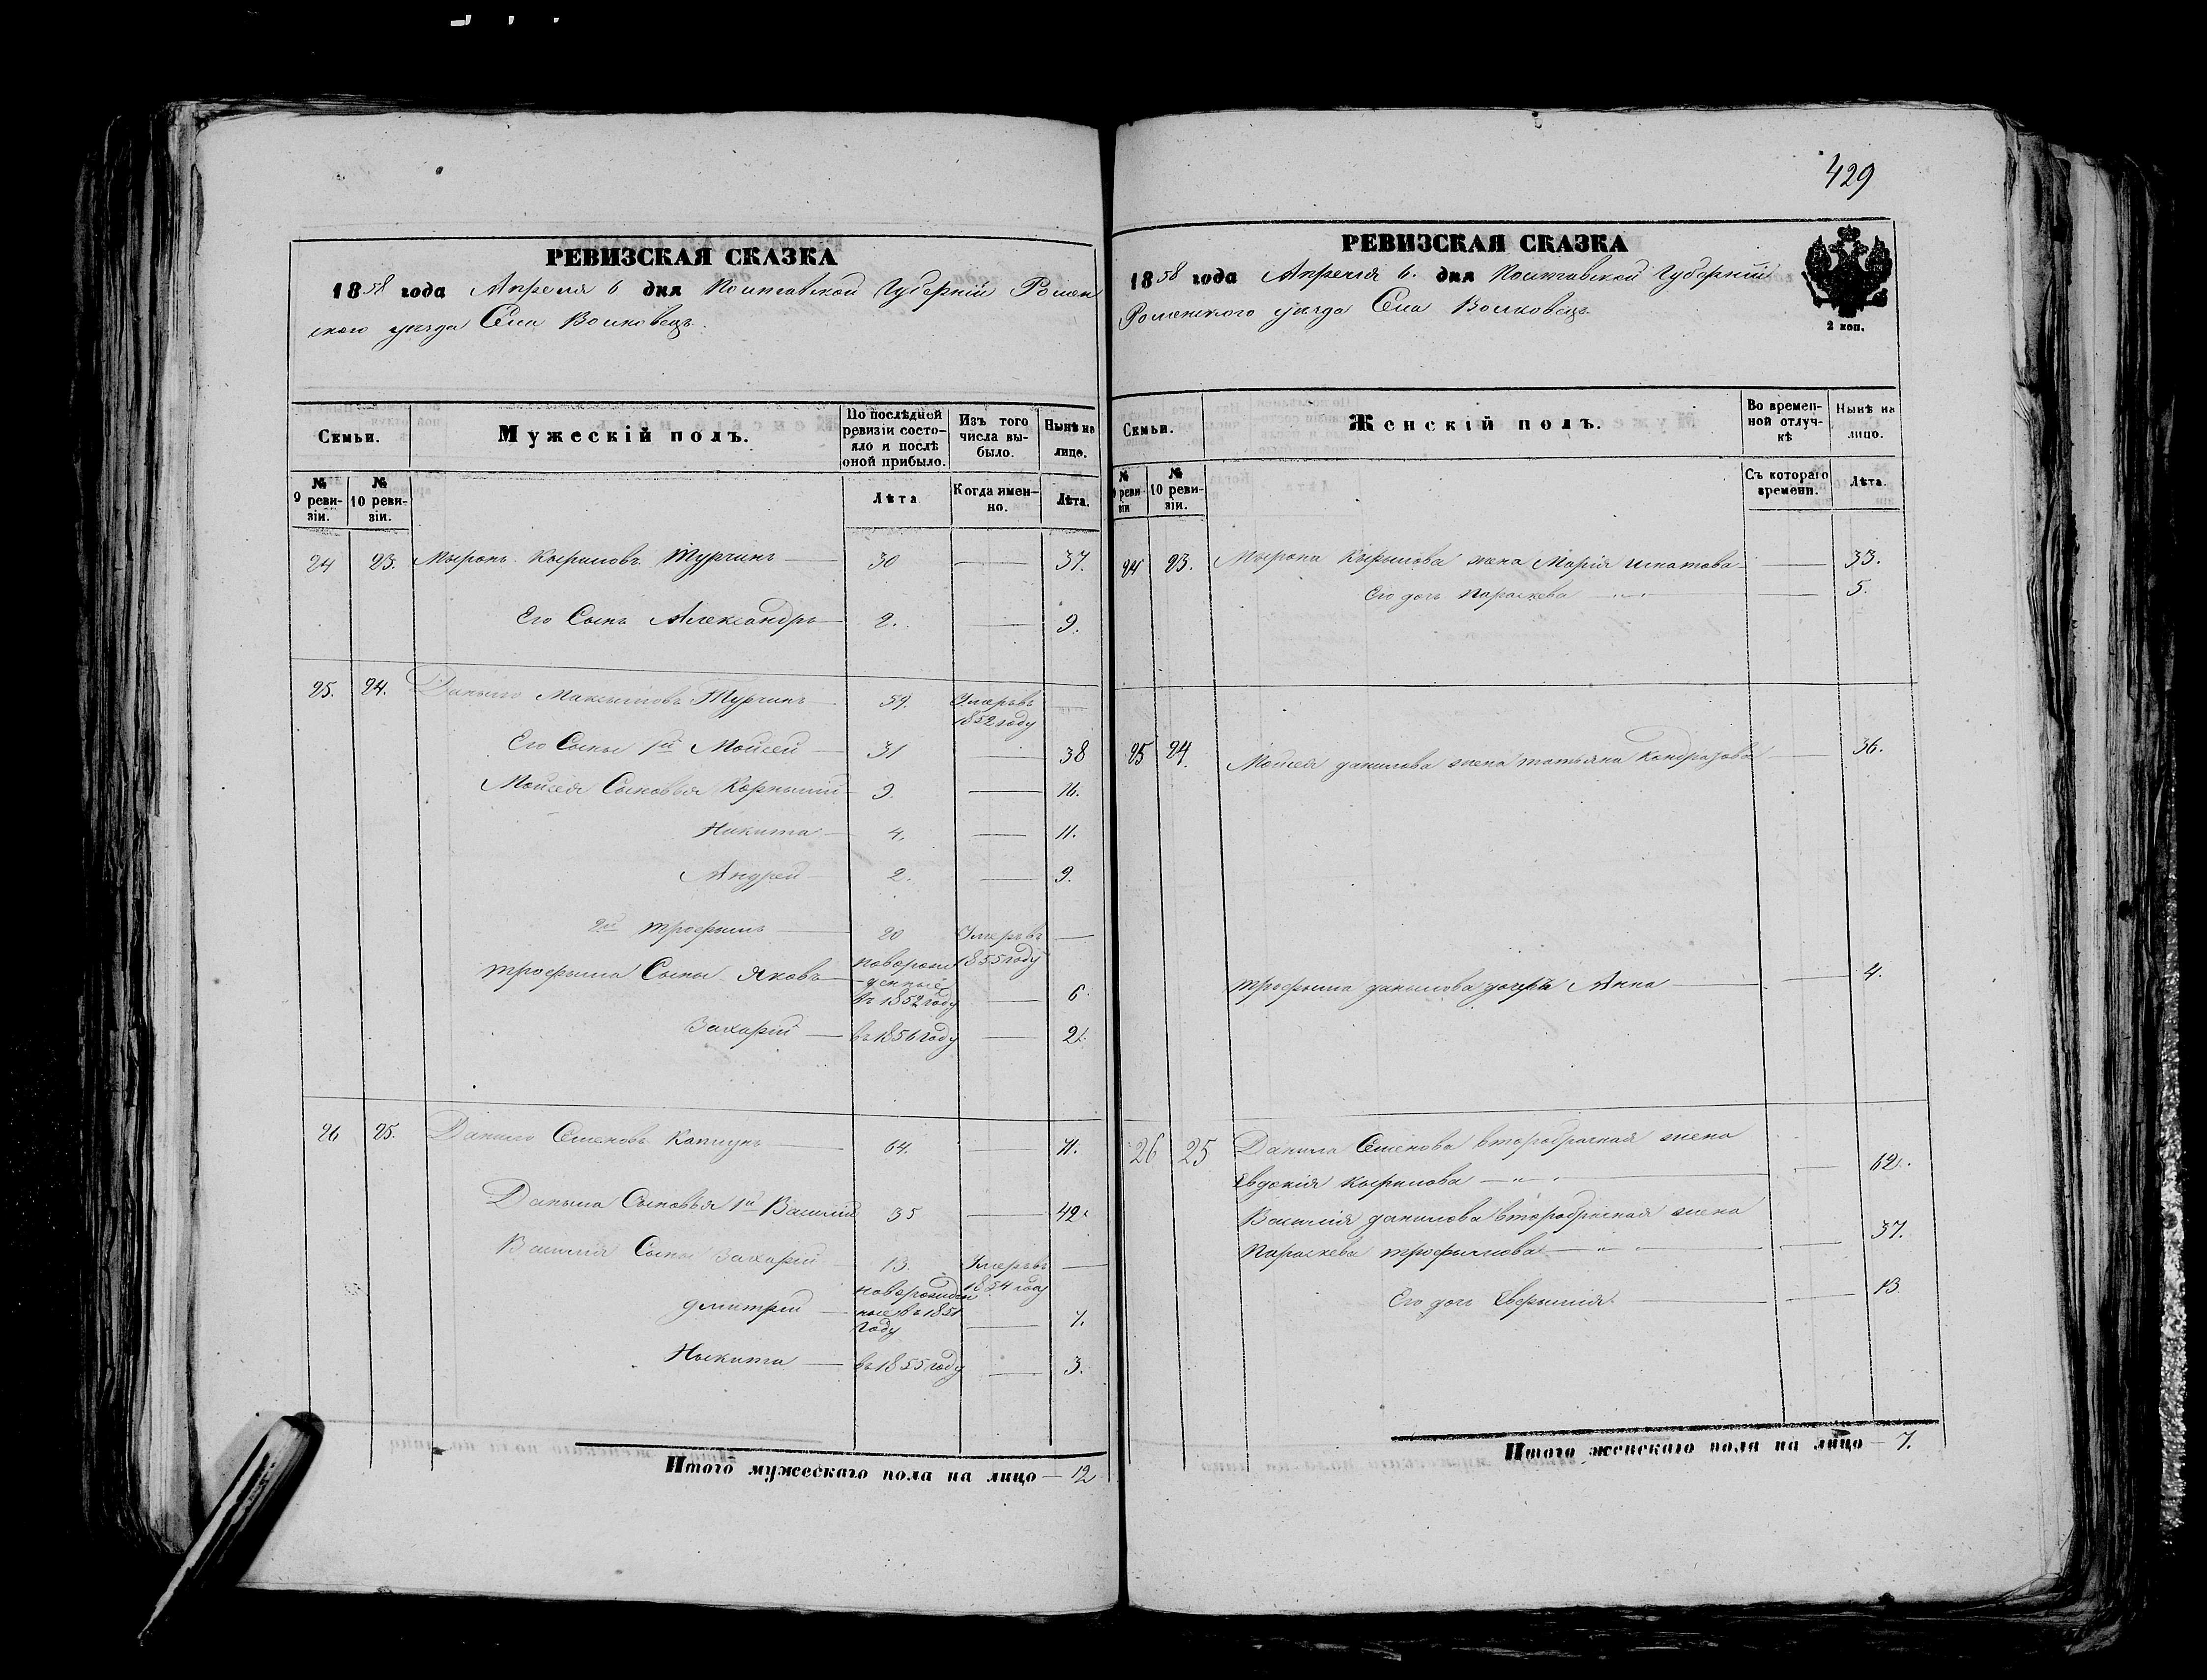 429
РЕВИЗСКАЯ СКАЗКА
1858 года Апреля 6 дня Полтавской Губерніи Ромен
ского уезда Села Волковецъ.
Семьи.
Мужескій полъ.
По послѣдней ревизіи состояло и послѣ оной прибыло.
Изъ того числа выбыло.
Нынѣ на лицо.
№ 9 ревизіи.
№ 10 ревизіи.
Лѣта
Когда именно.
Лѣта.
24 23. Мыронъ Кириловъ Турчинъ 30 — 37.
Его Сынъ Александръ 2. — 9.
25. 24. Даныло Макымовъ Турчинъ 59. Умеръ въ 1852 году —
Его Сыны 1й Мойсей 31 — 38
Мойсея Сыновья Корнылий 9. — 16.
Никита 4. — 11.
Андрей 2. — 9.
2й Трофымъ 20 Умеръ въ 1855 году —
Трофыма Сыны Яковъ новорожденные въ 1852 году — 6.
Захарій въ 1856 году — 2.
26 25. Данило Семеновъ 64. — 71.
Даныла Сыновья 1й Василий 35 — 42.
Василия Сыны Захарий 13. Умеръ въ 1854 году —
Дмитрий новорожденные въ 1851 году — 7.
Ныкита въ 1855 году — 3.
Итого мужескаго пола на лицо — 12
РЕВИЗСКАЯ СКАЗКА
1858 года Апреля 6. дня Полтавской Губерніи
Роменского уезда Села Волковецъ
2 коп.
Семьи.
Женскій полъ.
Во временной отлучкѣ
Нынѣ на лицо.
№ 9 ревизіи
№ 10 ревизіи.
Съ котораго времени.
Лѣта.
24 23. Мырона Кырылова жена Марія Игнатова — 33.
Его дочь Параскева — 5.
25 24. Мойсея Данилова жена Татьяна Кондратова — 36.
Трофыма Данылова дочръ Анна — 4.
26 25 Данила Семенова второбрачная жена
Евдокія Кырилова — 62.
Василія Данилова второбрачная жена
Параскева Трофымова — 37.
Его дочь — 13.
Итого женскаго пола на лицо — 7.